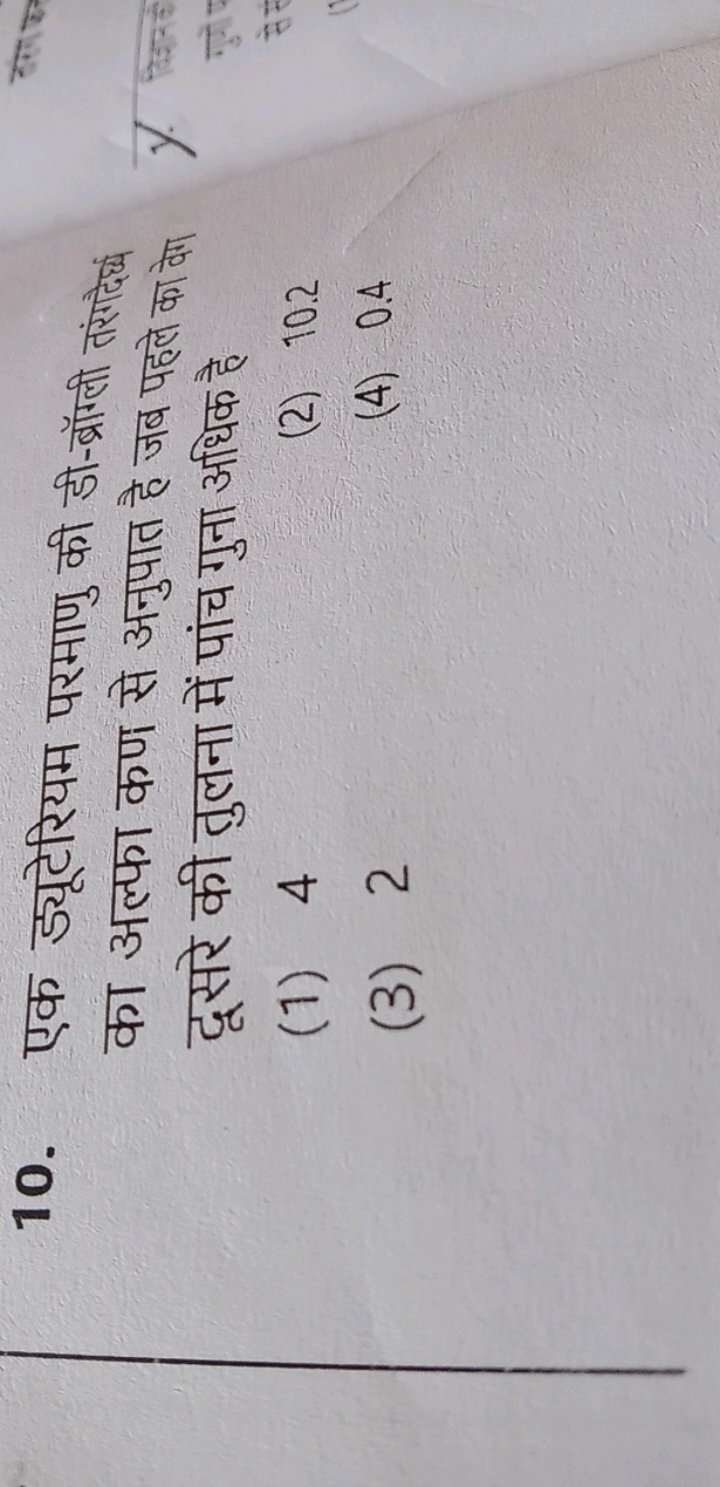 10. एक ड्यूटेरियम परमाणु की डी-ब्रॉग्ली तरंगदैर्घ्य
का अल्फा कण से अनुपात है जब पहले का वेग
दूसरे की तुलना में पांच गुना अधिक है
(1) 4 (2) 10.2
(3) 2 (4) 0.4